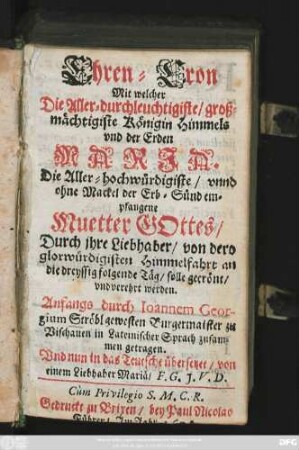 Ehren-Cron
Mit welcher
Die Aller-durchleuchtigiste/ groß-
mächtigiste Königin Himmels
vnd der Erden
MARIA.
Die Aller-hochwürdigiste/ vnnd
ohne Mackel der Erb-Sünd em-
pfangene
Muetter GOttes/
Durch ihre Liebhaber/ von dero
glorwürdigisten Himmelfahrt an
die dreyssig folgende Täg/ solle gecrönt/
vnd verehrt werden.
Anfangs durch Ioannem Geor-
gium Ströbl gewesten Burgermaister zu
Vischauen in Lateinischer Sprach zusam-
men getragen.
Vnd nun in das Teutsche übersetzet/ von
einem Liebhaber Mariä/ F. G. J. V. D.
Cum Privilegio S. M. C. R.
Gedruckt zu Brixen/ bey Paul Nicolao
Führer/